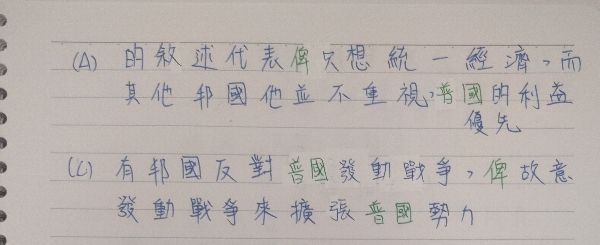 (A) 的敘述代表俾只想統一經濟，而
其他邦國他並不重視，普國的利益
優先
(C) 有邦國反對普國發動戰爭，俾故意
發動戰爭來擴張普國勢力